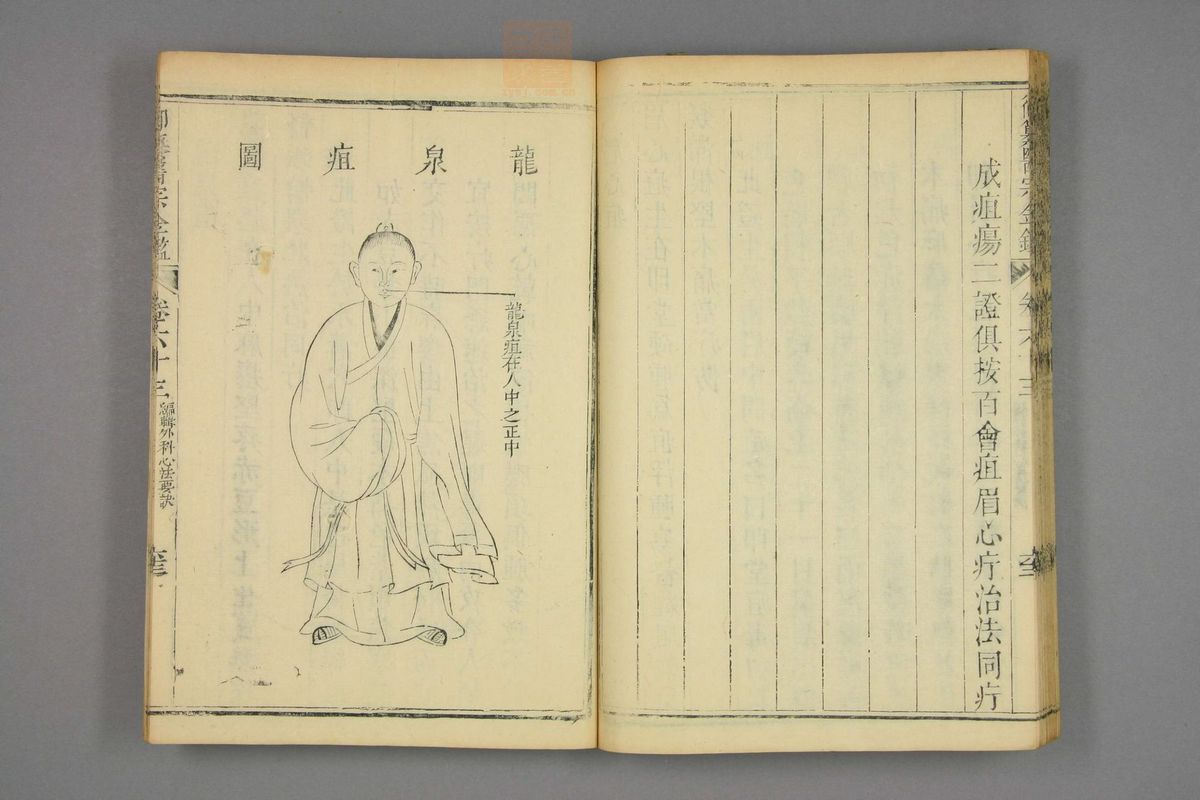 成疽瘍二證俱按百會疽眉心疔治法同疔
御纂醫宗金鑑
卷六十三
龍泉疽圖
龍泉疽在人中之正中
御纂醫宗金鑑
卷六十三
編輯外科心法要訣